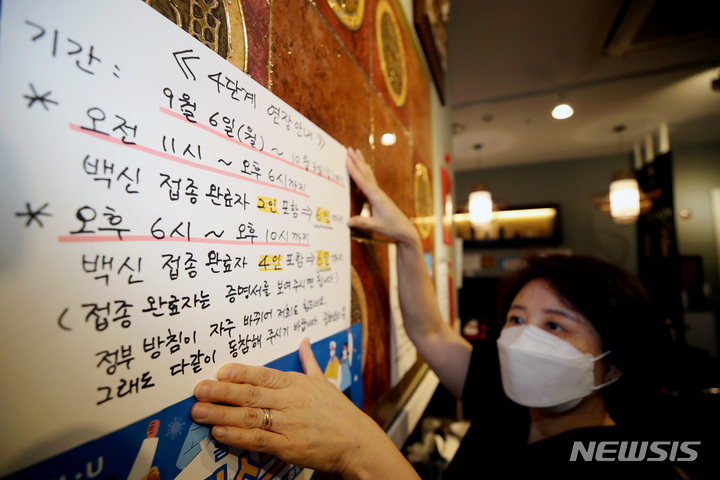 ≪4단계 연장안내≫
기간: 9월 6일(월) ~ 10월 3일(일)까지
* 오전 11시 ~ 오후 6시까지
백신 접종 완료자 2인 포함 ⇒ 6인
* 오후 6시 ~ 오후 10시까지
백신 접종 완료자 4인 포함 ⇒ 6인
(접종 완료자는 증명서를 보여주시면 됩니다)
정부 방침이 자주 바뀌어 저희도 힘드네요.
그래도 다같이 동참해 주시기 바랍니다
NEWSIS